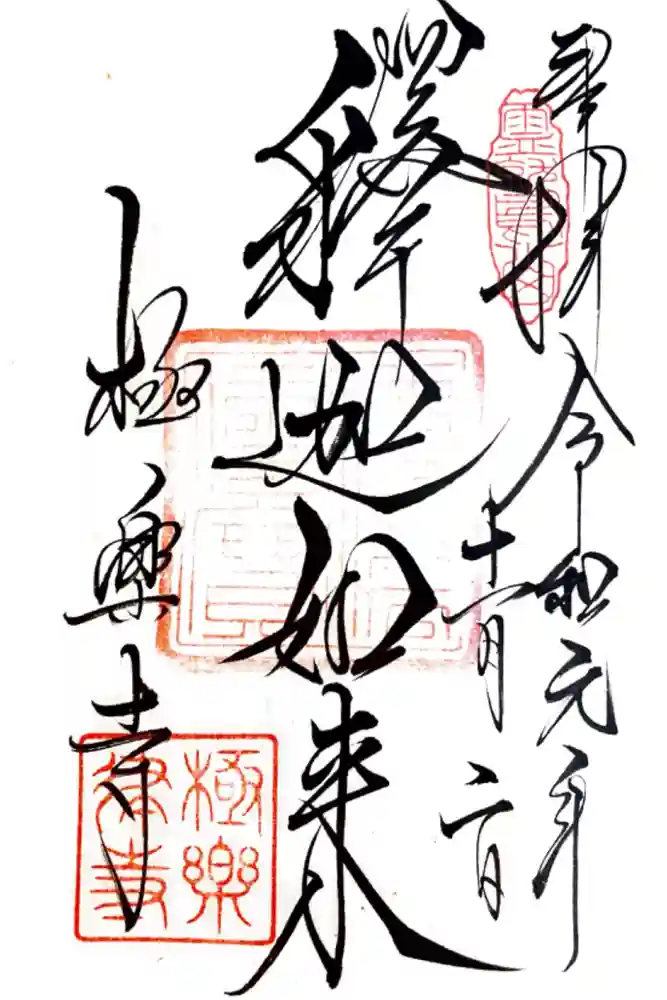 奉拝 令和元年
十一月二日
釋迦如来
極楽寺
極樂
律寺